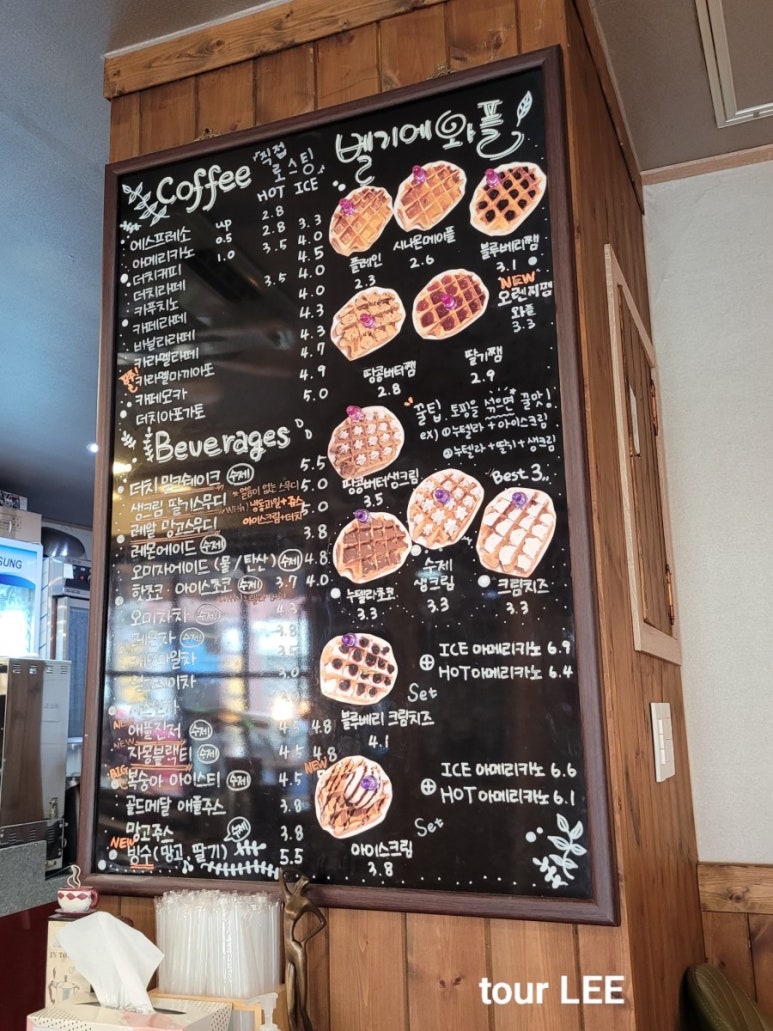 Coffee
직접
로스팅
HOT ICE
에스프레소 up 2.8
아메리카노 0.5 2.8 3.3
더치커피 1.0 3.5 4.0
더치라떼 4.5
카푸치노 3.5 4.0
카페라떼 4.0
바닐라라떼 4.3
카라멜라떼 4.3
카라멜마키아또 4.7
카페모카 4.9
더치아포가토 5.0
Beverages
더치 밀크쉐이크 수제 5.5
생크림 딸기스무디 5.0
*얼음이 없는 스무디
냉동과일+쥬스
아이스크림+더치
리얼 망고스무디 5.0
레몬에이드 수제 3.8
오미자에이드 (물/탄산) 수제 4.8
핫쵸코·아이스쵸코 수제 3.7 4.0
오미자차 수제 4.3
수제 3.8
3.5
3.0
NEW 애플진저 수제 4.5 4.8
NEW 자몽블랙티 수제 4.5 4.8
BIG 복숭아 아이스티 수제 4.5
골드메달 애플주스 3.8
망고주스 3.8
NEW 빙수(망고, 딸기) 수제 5.5
벨기에 와플
플레인
2.3
시나몬메이플
2.6
블루베리쨈
3.1
NEW
오렌지쨈
와플
3.3
땅콩버터쨈
2.8
딸기쨈
2.9
꿀팁. 토핑을 섞으면 꿀맛!
ex) ①누텔라+아이스크림
②누텔라+딸기+생크림
땅콩버터생크림
3.5
Best 3
누텔라쵸코
3.3
수제
생크림
3.3
크림치즈
3.3
블루베리 크림치즈
4.1
Set
⊕ ICE 아메리카노 6.9
HOT 아메리카노 6.4
NEW
아이스크림
3.8
Set
⊕ ICE 아메리카노 6.6
HOT 아메리카노 6.1
SUNG
tour LEE